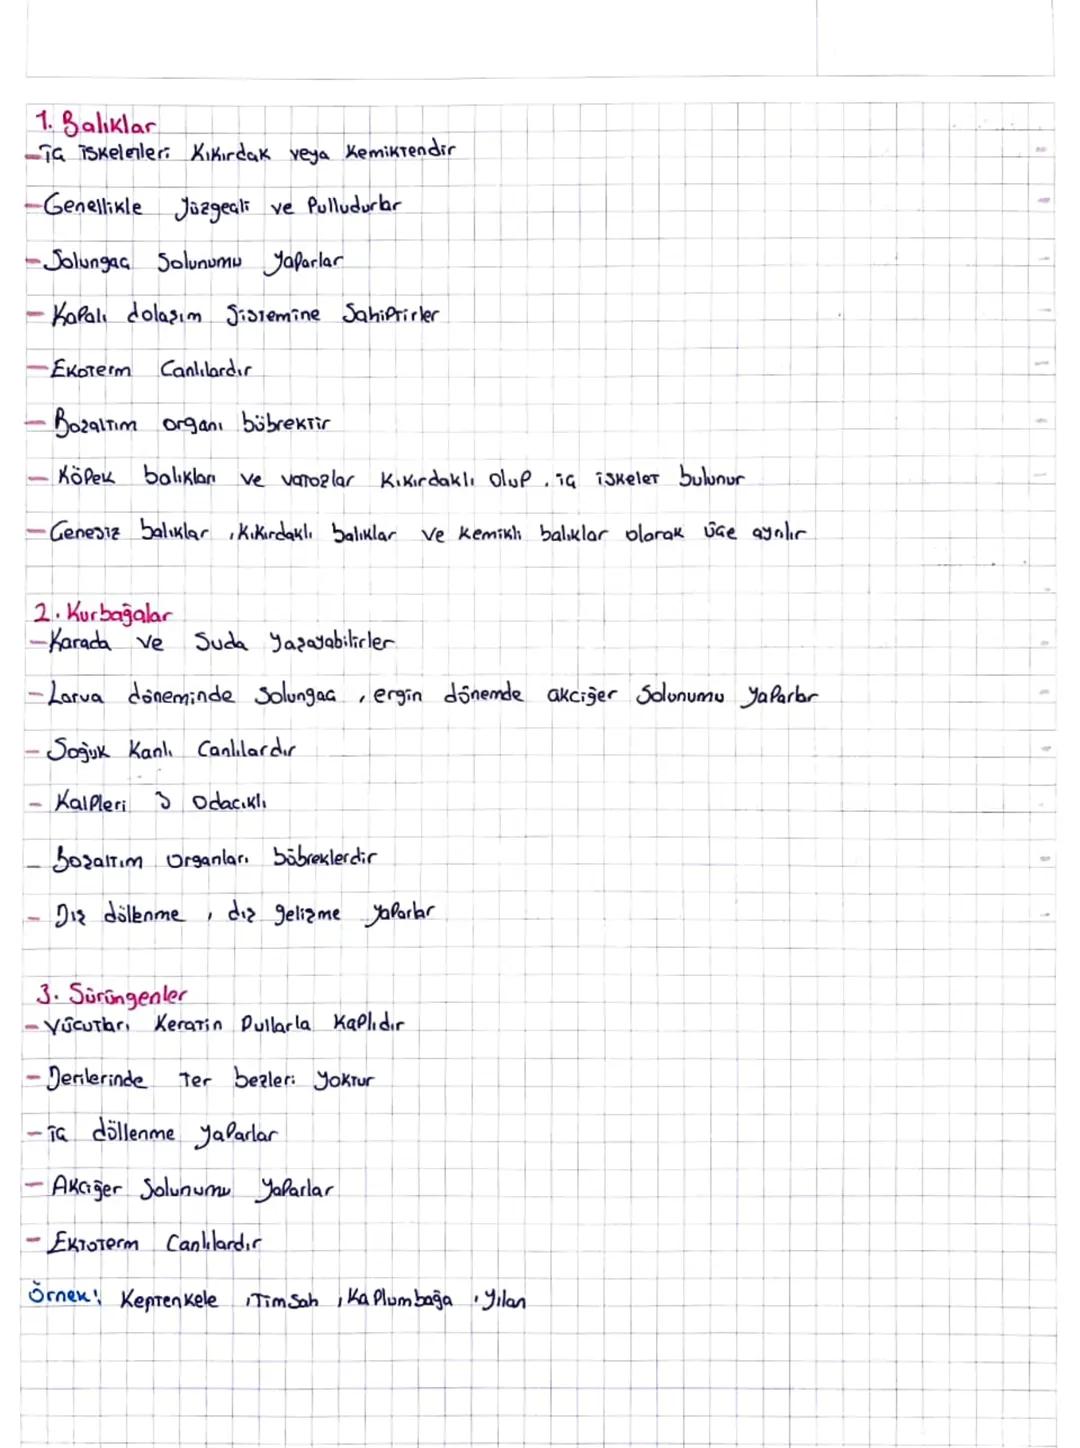 1. Balıklar
- İç iskeletleri Kıkırdak veya Kemiktendir
- Genellikle Yüzgeçli ve Pulludurlar
- Solungaç Solunumu Yaparlar
- Kapalı dolaşım Sistemine Sahiptirler
- Ekoterm Canlılardır
- Boşaltım organı böbrektir
- Köpek balıkları ve vatozlar Kıkırdaklı olup, iç iskelet bulunur
- Çenesiz balıklar, Kıkırdaklı balıklar ve Kemikli balıklar olarak üçe ayrılır
2. Kurbağalar
- Karada ve Suda Yaşayabilirler
- Larva döneminde Solungaç, ergin dönemde akciğer Solunumu Yaparlar
- Soğuk Kanlı Canlılardır
- Kalpleri 3 Odacıklı
- Boşaltım Organları böbreklerdir
- Dış döllenme, dış gelişme Yaparlar
3. Sürüngenler
- Vücutları Keratin Pullarla Kaplıdır
- Derilerinde Ter bezleri Yoktur
- İç döllenme yaparlar
- Akciğer Solunumu Yaparlar
- Ektoterm Canlılardır
Örnek: Keptenkele, Timsah, Kaplumbağa, Yılan